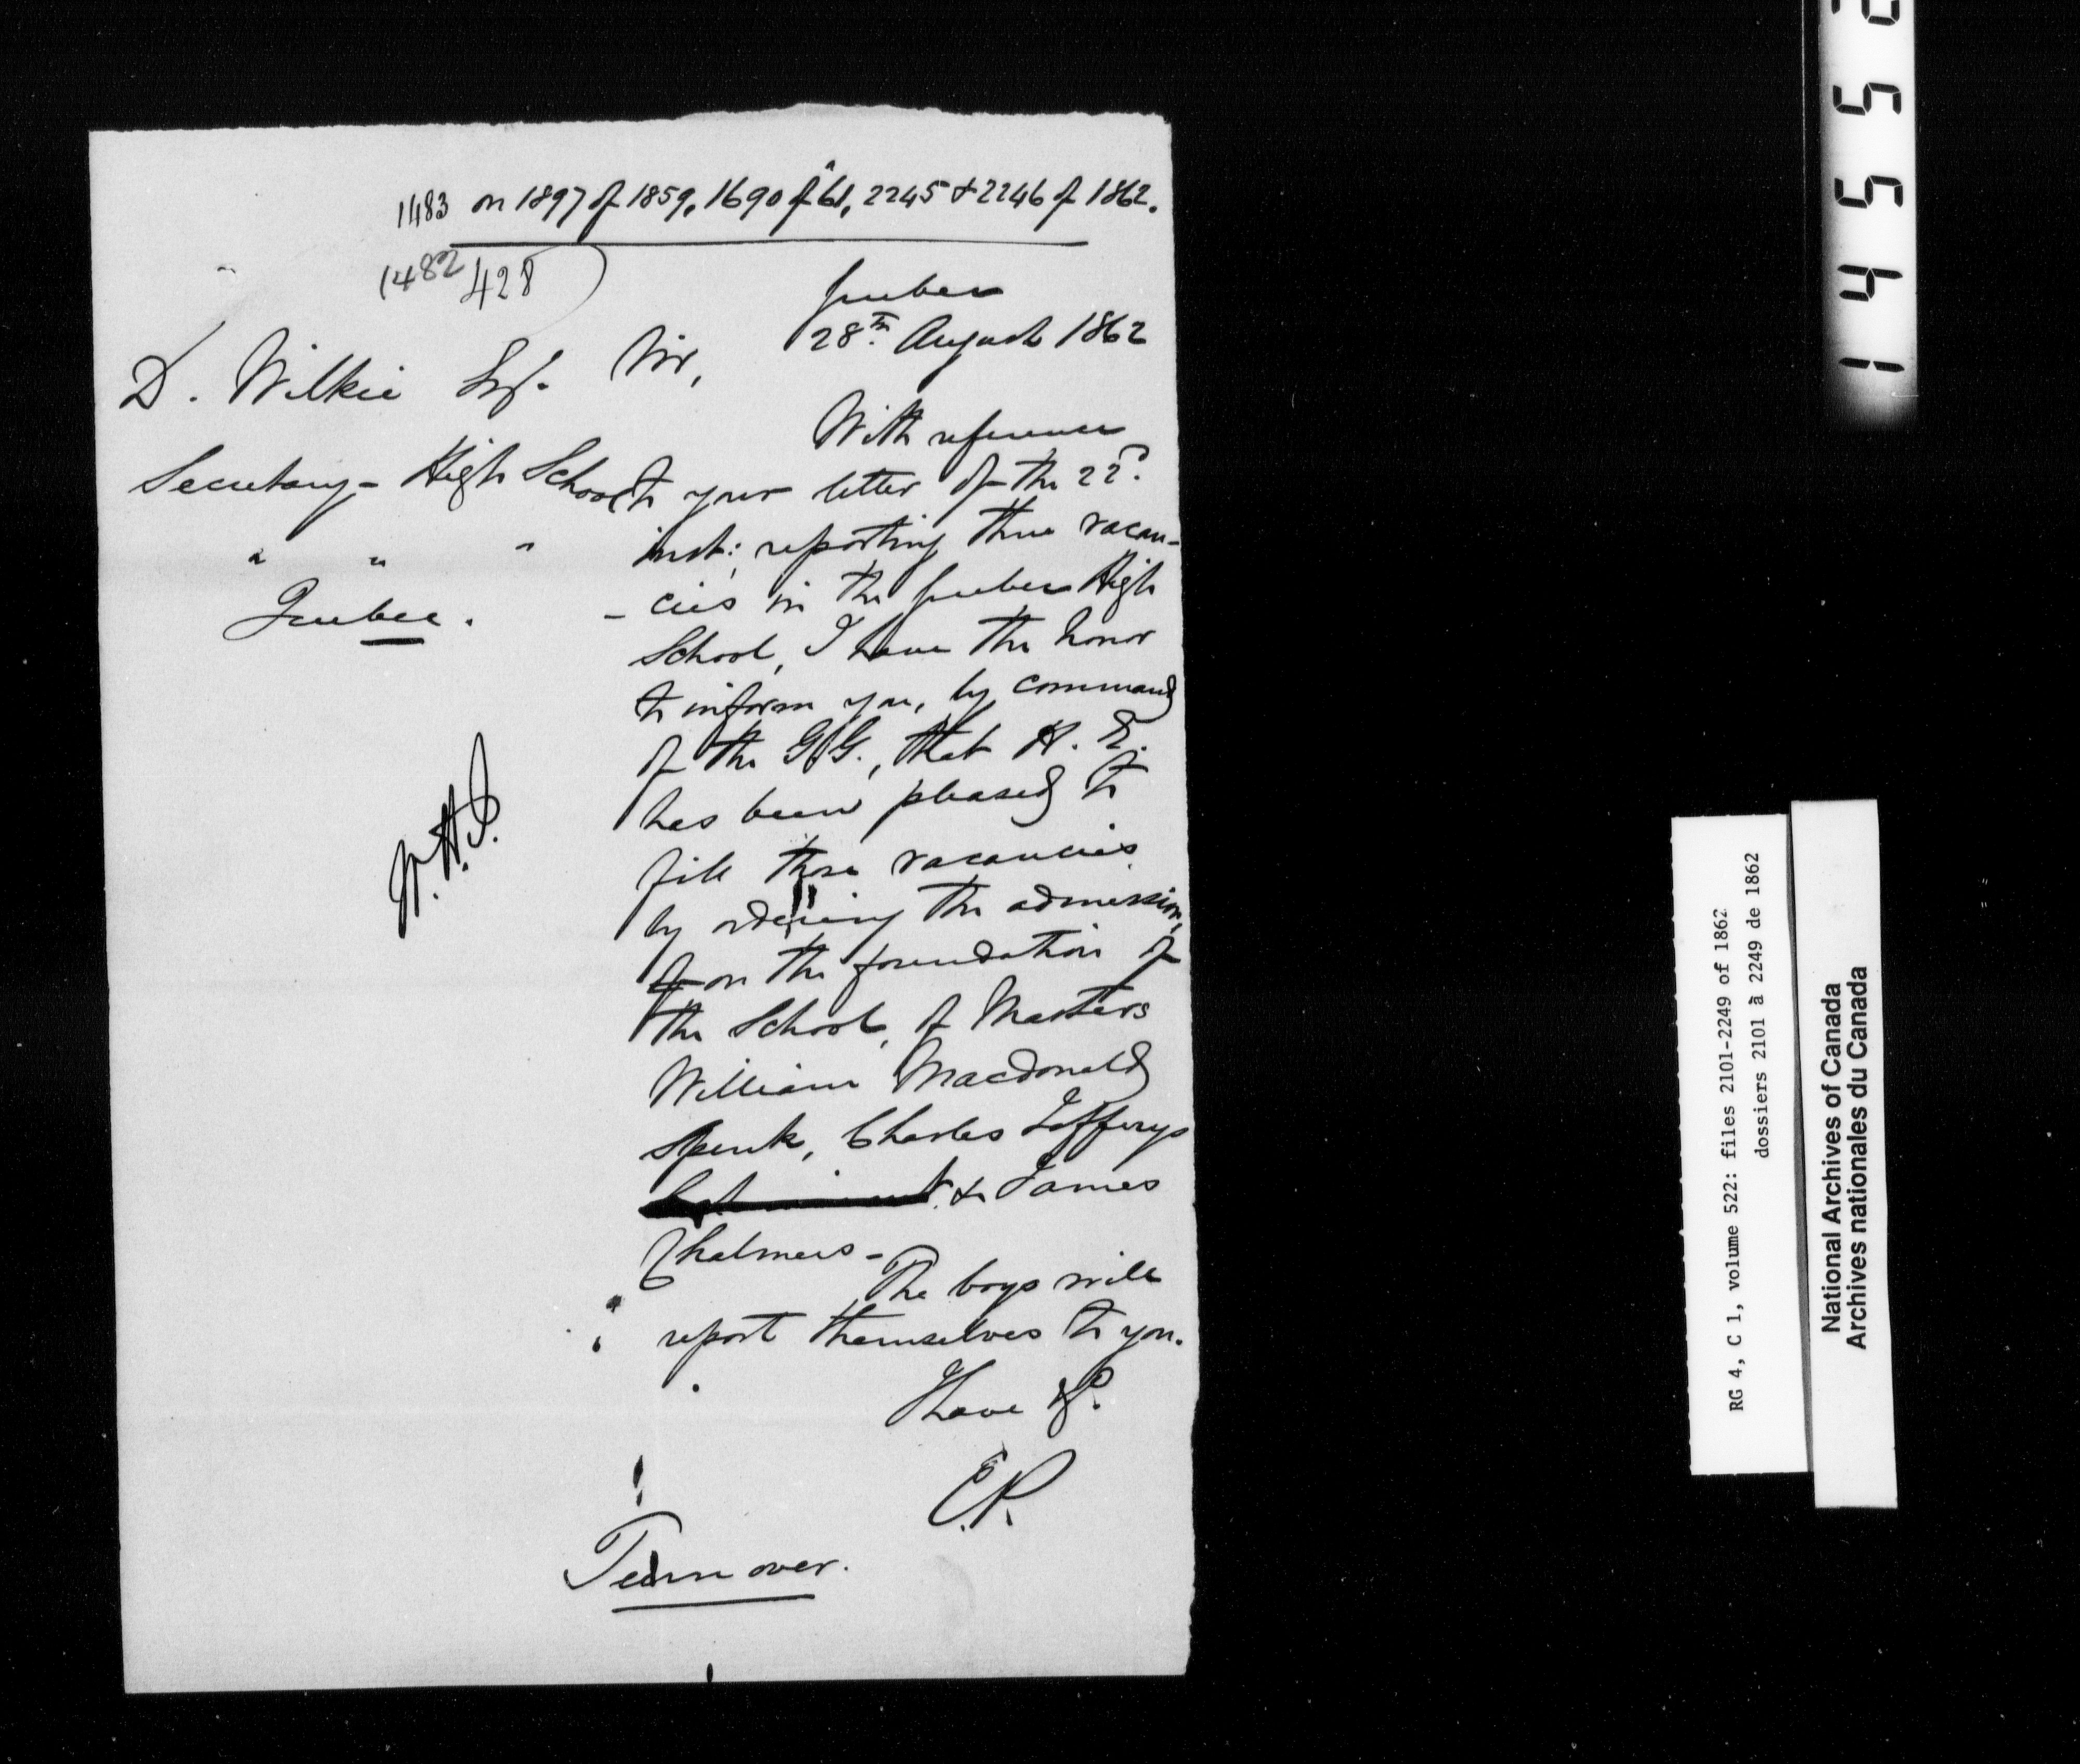 1483 on 1897 of 1859, 1690 of 61, 2245 & 2246 of 1862.
1482 428
Quebec
28th August 1862
D. Wilkie Esq. Sir,
Secretary - High School
" " "
Quebec.
With reference
to your letter of the 22d.
inst: reporting three vacan-
-cies in the Quebec High
School, I have the honor
to inform you, by command
of the G.G., that H. E.
has been pleased to
fill those vacancies
by ordering the admission,
on the foundation of
the School, of Masters
William Macdonald
Spink, Charles Jefferys
& James
Chalmers -
The boys will
report themselves to you.
I have &c.
E.P.
W.H.J.
Turn over.
1 4 5 5 2
RG 4, C 1, volume 522: files 2101-2249 of 1862
dossiers 2101 à 2249 de 1862
National Archives of Canada
Archives nationales du Canada